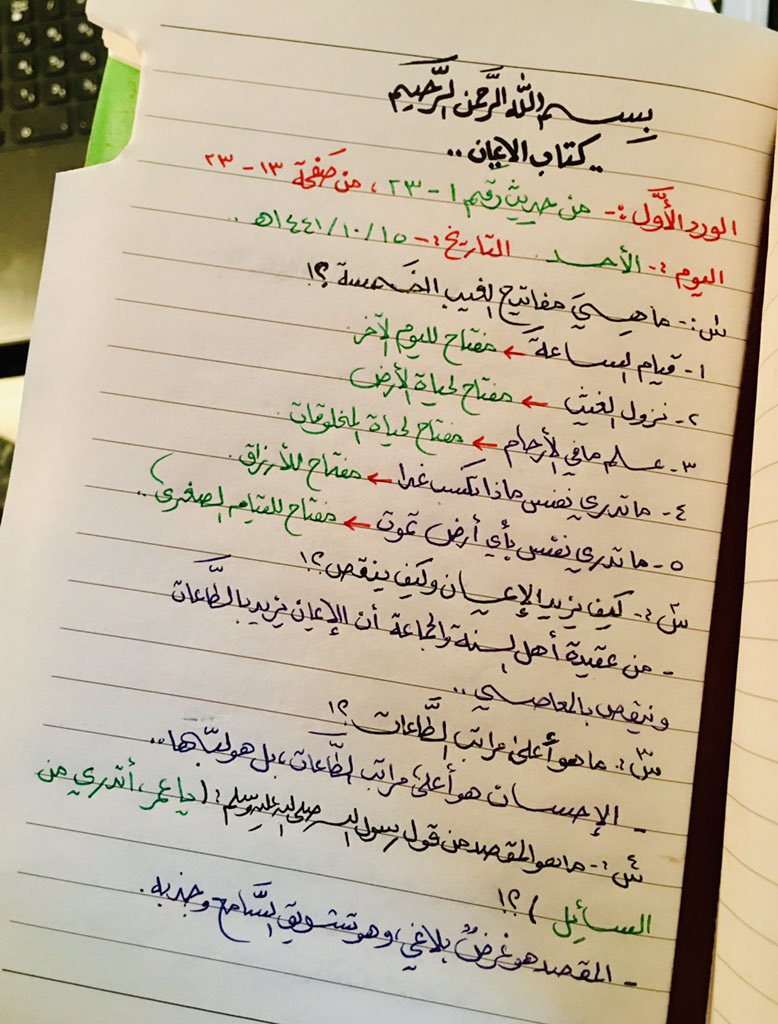 بسم اللّٰه الرَّحمن الرَّحيم
كتاب الإيمان ..
الورد الأوَّل :- من حديث رقم ١ - ٢٣ ، من صَفحَة ١٣ - ٢٣
اليوم :- الأحــد التاريخ :- ١٥ / ١٠ / ١٤٤١هـ ..
س١:- ما هـيَ مفاتيح الغيب الخمسة ؟!
١- قيام الساعة ← مفتاح لليوم الآخر
٢- نزول الغيث ← مفتاح لحياة الأرض
٣- علم ما في الأرحام ← مفتاح لحياة المخلوقات
٤- ما تدري نفس ماذا تكسب غدا ← مفتاح للأرزاق
٥- ما تدري نفس بأي أرض تموت ← مفتاح للقيام الصغرى ..
س٢:- كيف يزيد الإيمان وكيف ينقص ؟!
- من عقيدة أهل السنة والجماعة أن الإيمان يزيد بالطَّاعات
وينقص بالمعاصي ..
س٣:- ما هو أعلى مراتب الطَّاعات ؟!
- الإحسان هو أعلى مراتب الطَّاعات ، بل هو لبّها ..
س٤:- ما هو المقصد من قول رسول الله صلى الله عليه وسلم : ( يا عمر ، أتدري من
السائِل ) ؟!
- المقصد هو غرضٌ بلاغي ، وهو تشويق السَّامع وجذبه .